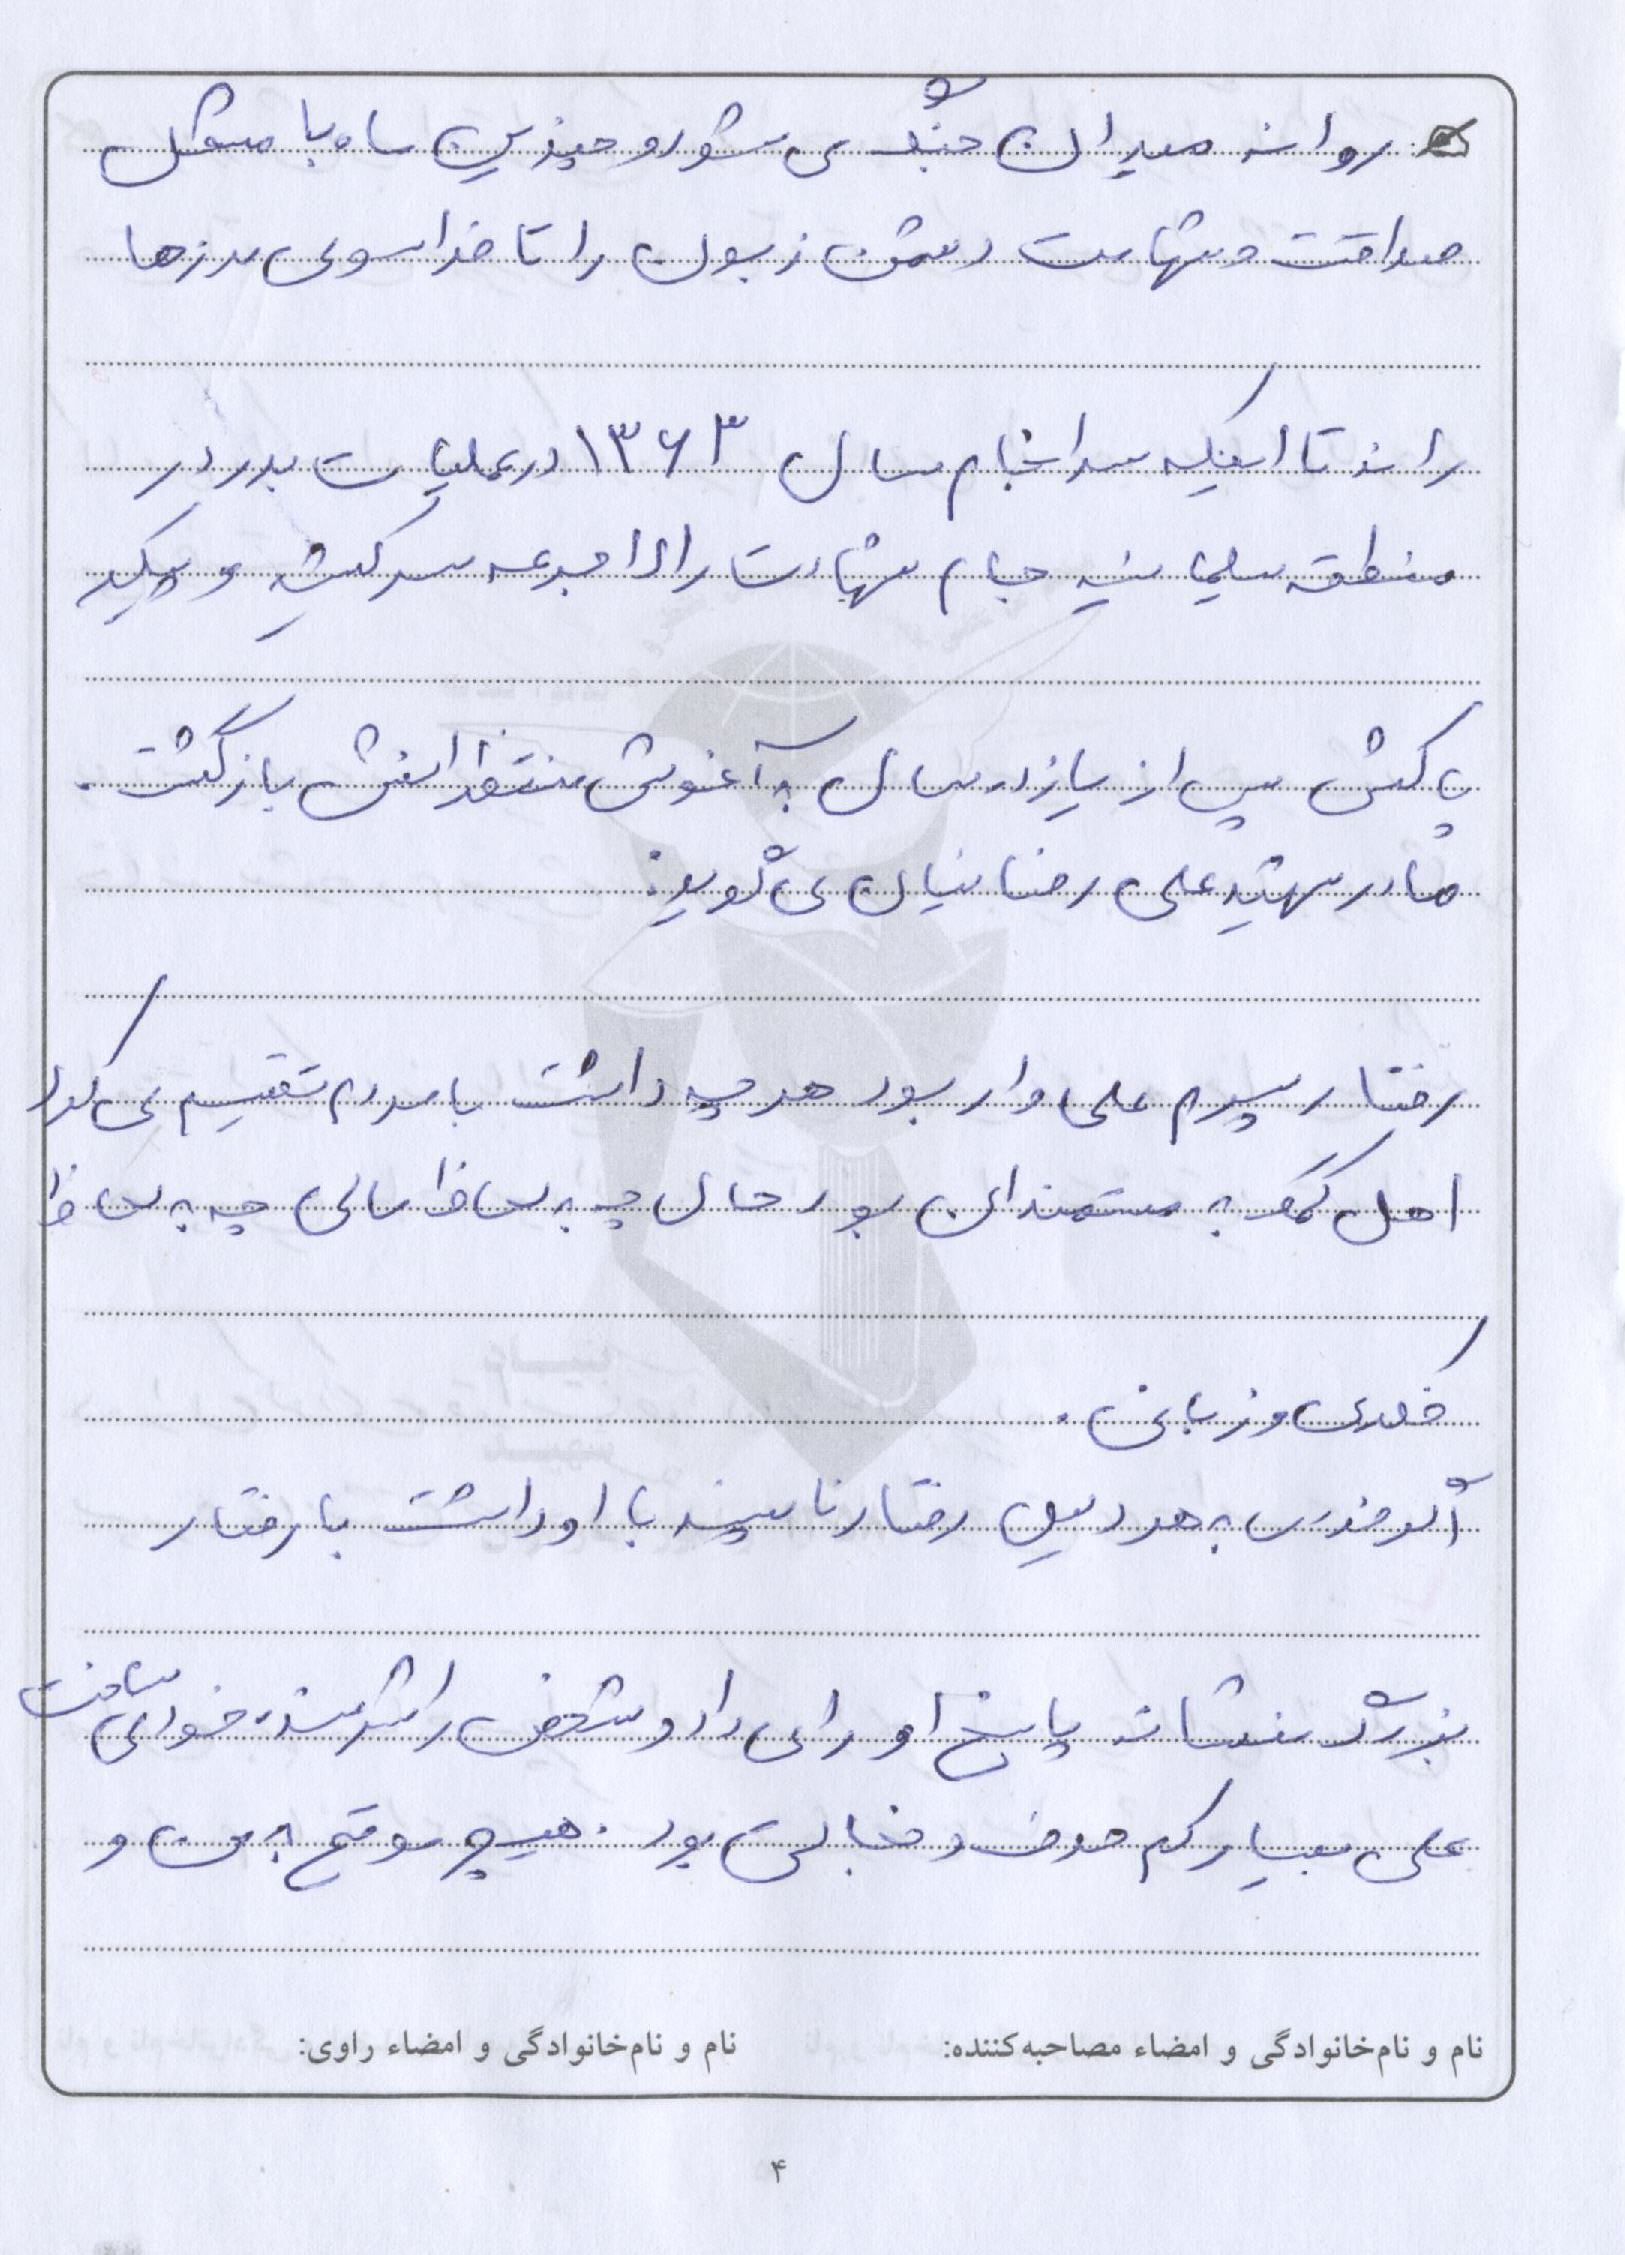 روانه میدان جنگ می شود و چندین ماه با مشکل
صداقت و شهامت دشمن زبون را تا فراسوی مرزها
راند تا اینکه سرانجام سال ۱۳۶۳ در عملیات بدر در
منطقه سلیمانیه جام شهادت را لاجرعه سرکشید و پیکر
پاکش پس از یازده سال به آغوش منتظرانش بازگشت.
مادر شهید علی رضائیان می گوید:
رفتار پسرم علی وار بود هر چه داشت با مردم تقسیم می کرد
اهل کمک به مستمندان بود حال چه به لحاظ مالی چه به لحاظ
فکری و زبانی.
اگر فردی به هر دلیل رفتار ناپسند با او داشت با رفتار
بزرگ منشانه پاسخ او را می داد و شخص را شرمنده خود می ساخت
علی بسیار کم حرف و خجالتی بود. هیچ موقع به من و
نام و نام‌خانوادگی و امضاء مصاحبه‌کننده: نام و نام‌خانوادگی و امضاء راوی:
۴